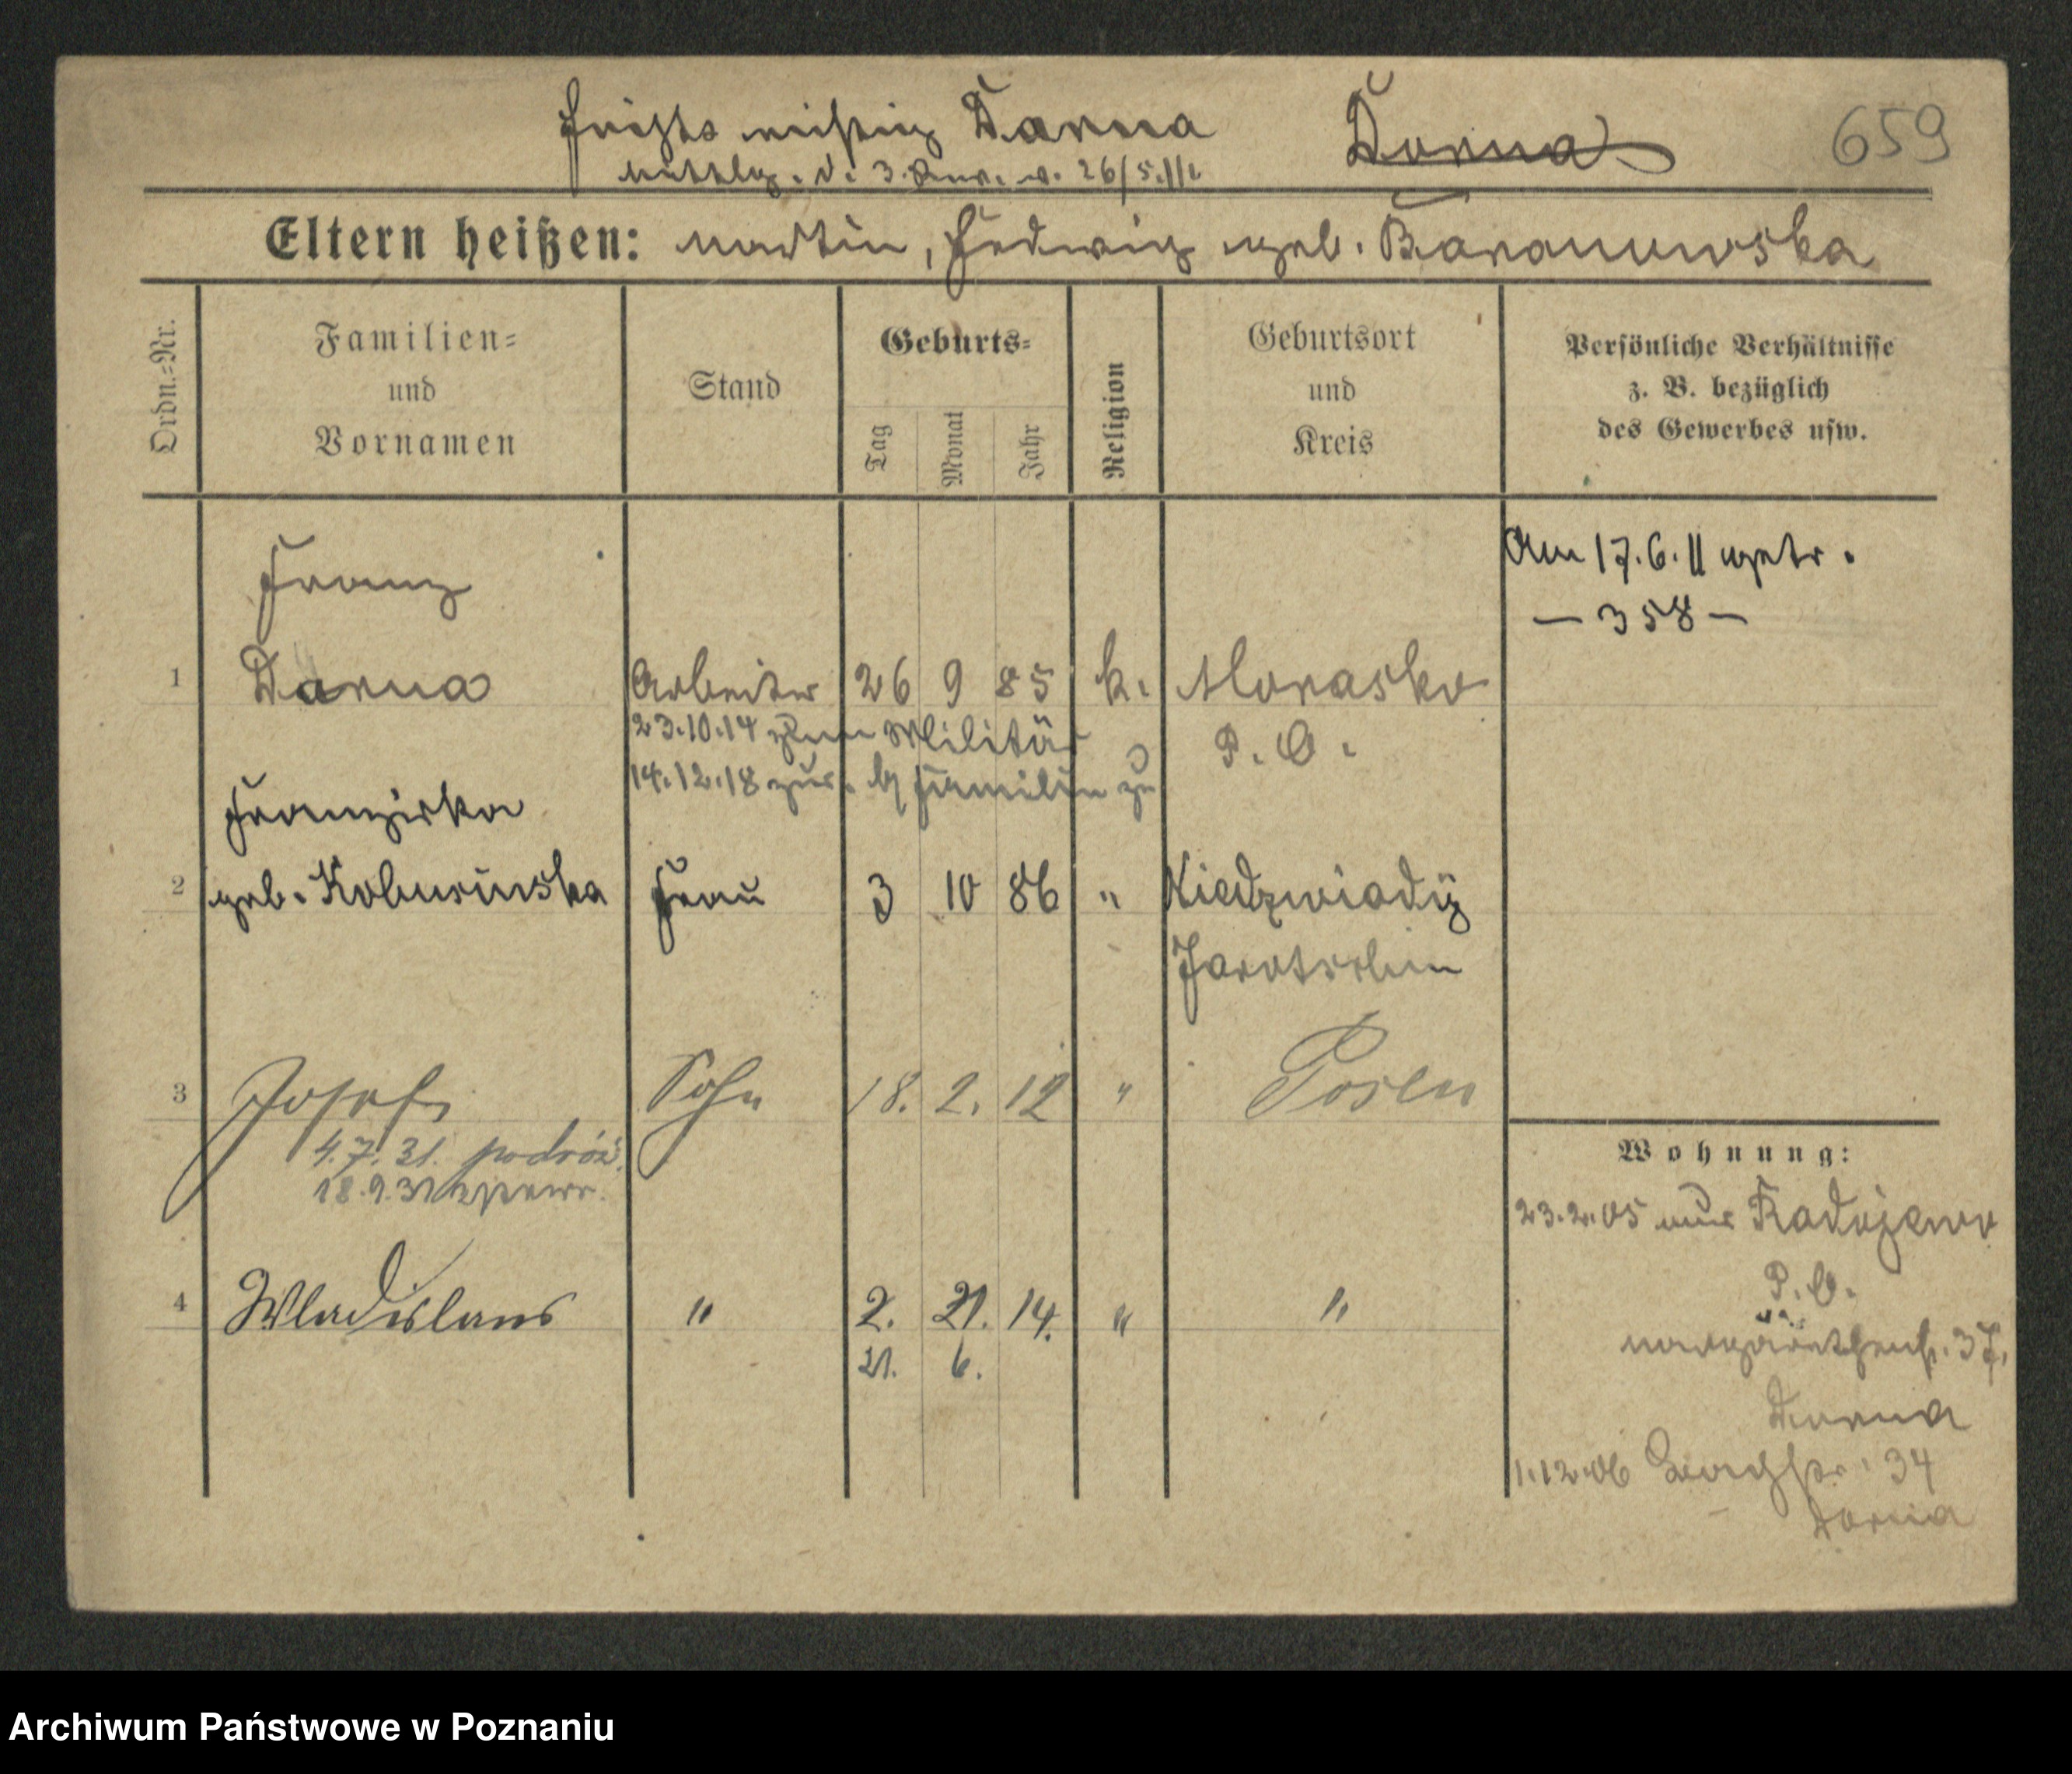 heißt richtig Darna Dorna 659
Mittlg. d. 3. Rev. v. 26/5.11
Eltern heißen: Martin, Hedwig geb. Baranowska
Ordn.-Nr. Familien- und Vornamen Stand Geburts- Tag Monat Jahr Religion Geburtsort und Kreis Persönliche Verhältnisse z. B. bezüglich des Gewerbes usw.
Am 17.6.11 getr.
— 358 —
Franz
1 Darna Arbeiter 26 9 85 k. Morasko
23.10.14 zum Militär P. O.
14.12.18 zur. Familie zu
Franziska
2 geb. Frau 3 10 86 " Niedzwiady
Jarotschin
3 Josef Sohn 18. 2. 12 " Posen
4.7.31. podróż
18.9.31
4 Wladislaus " 2. 21. 14. " "
21. 6.
Wohnung:
23.2.05 aus Radojewo
P. O.
37,
Dorna
1.12.06 34
Dorna
Archiwum Państwowe w Poznaniu